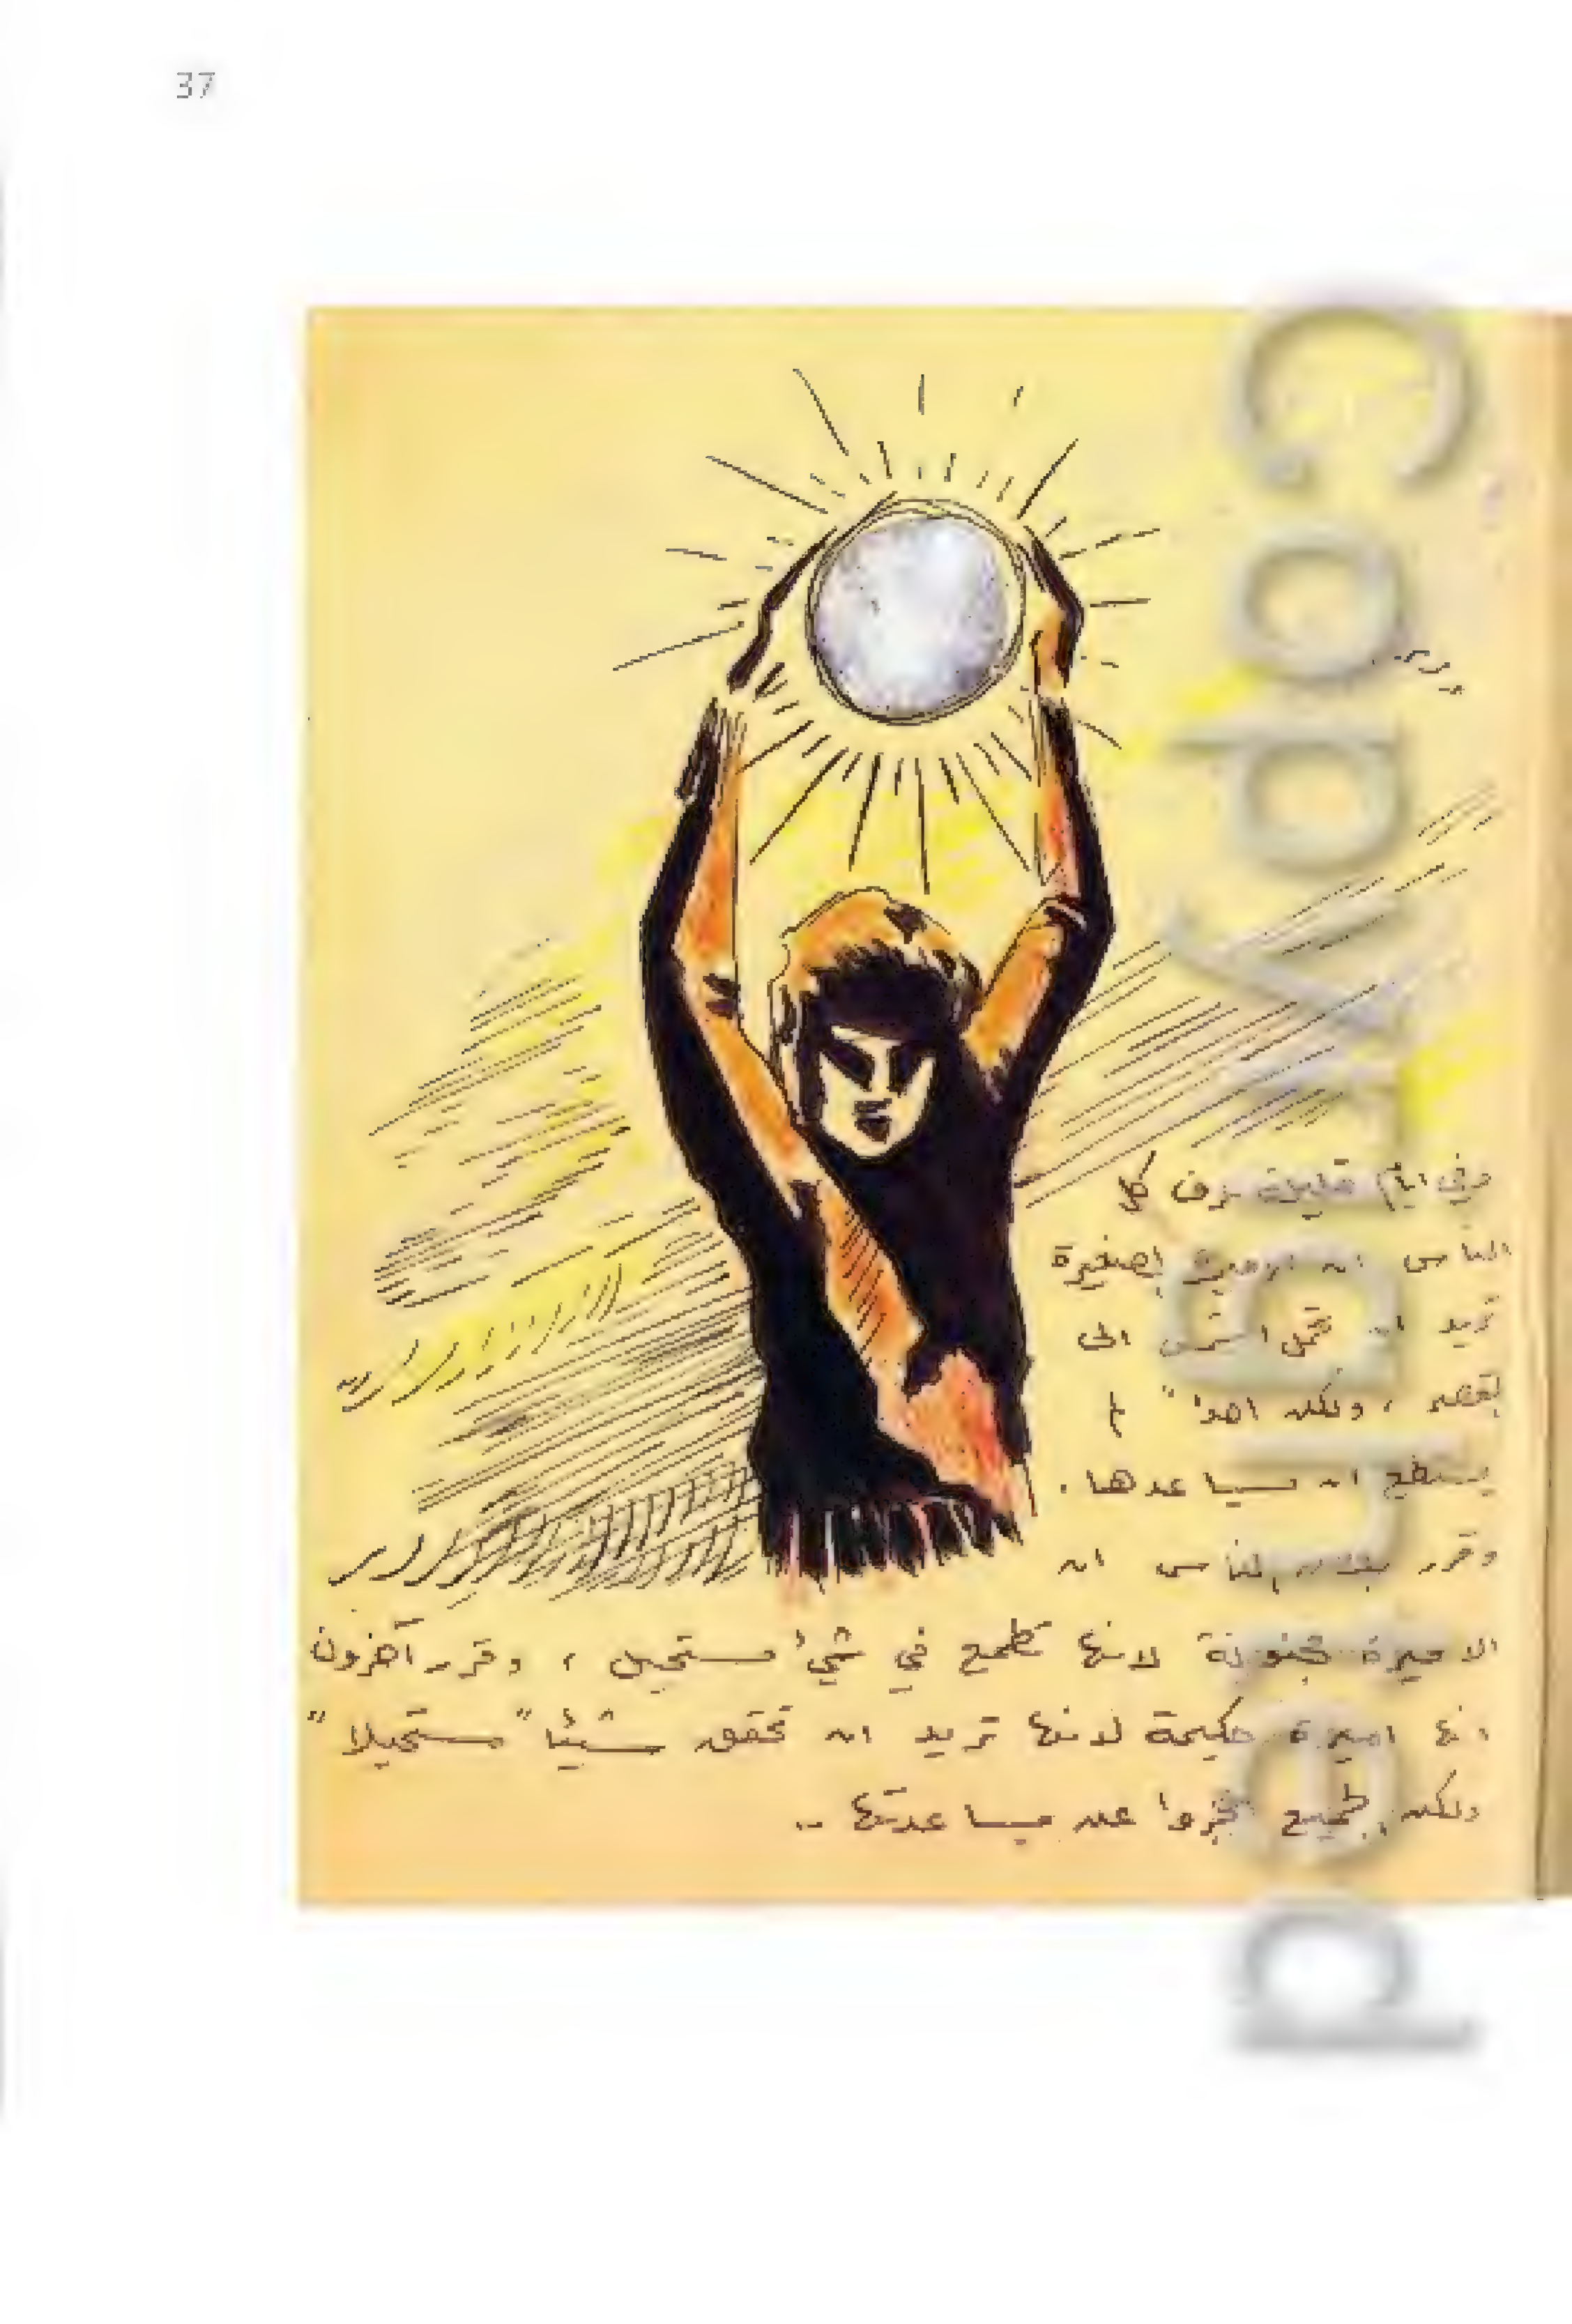 37
وفي ايام قليلة عرف كل
الناس ان الاميرة الصغيرة
تريد ان تحمل الشمس الى
القصر ، ولكن احدا" لم
يستطع ان يساعدها .
وقرر بعض الناس ان
الاميرة مجنونة لانها تطمع في شيء مستحيل ، وقرر آخرون
انها اميرة حكيمة لانها تريد ان تحقق شيئا" مستحيلا"
ولكن الجميع عجزوا عن مساعدتها ..
Copyrighted